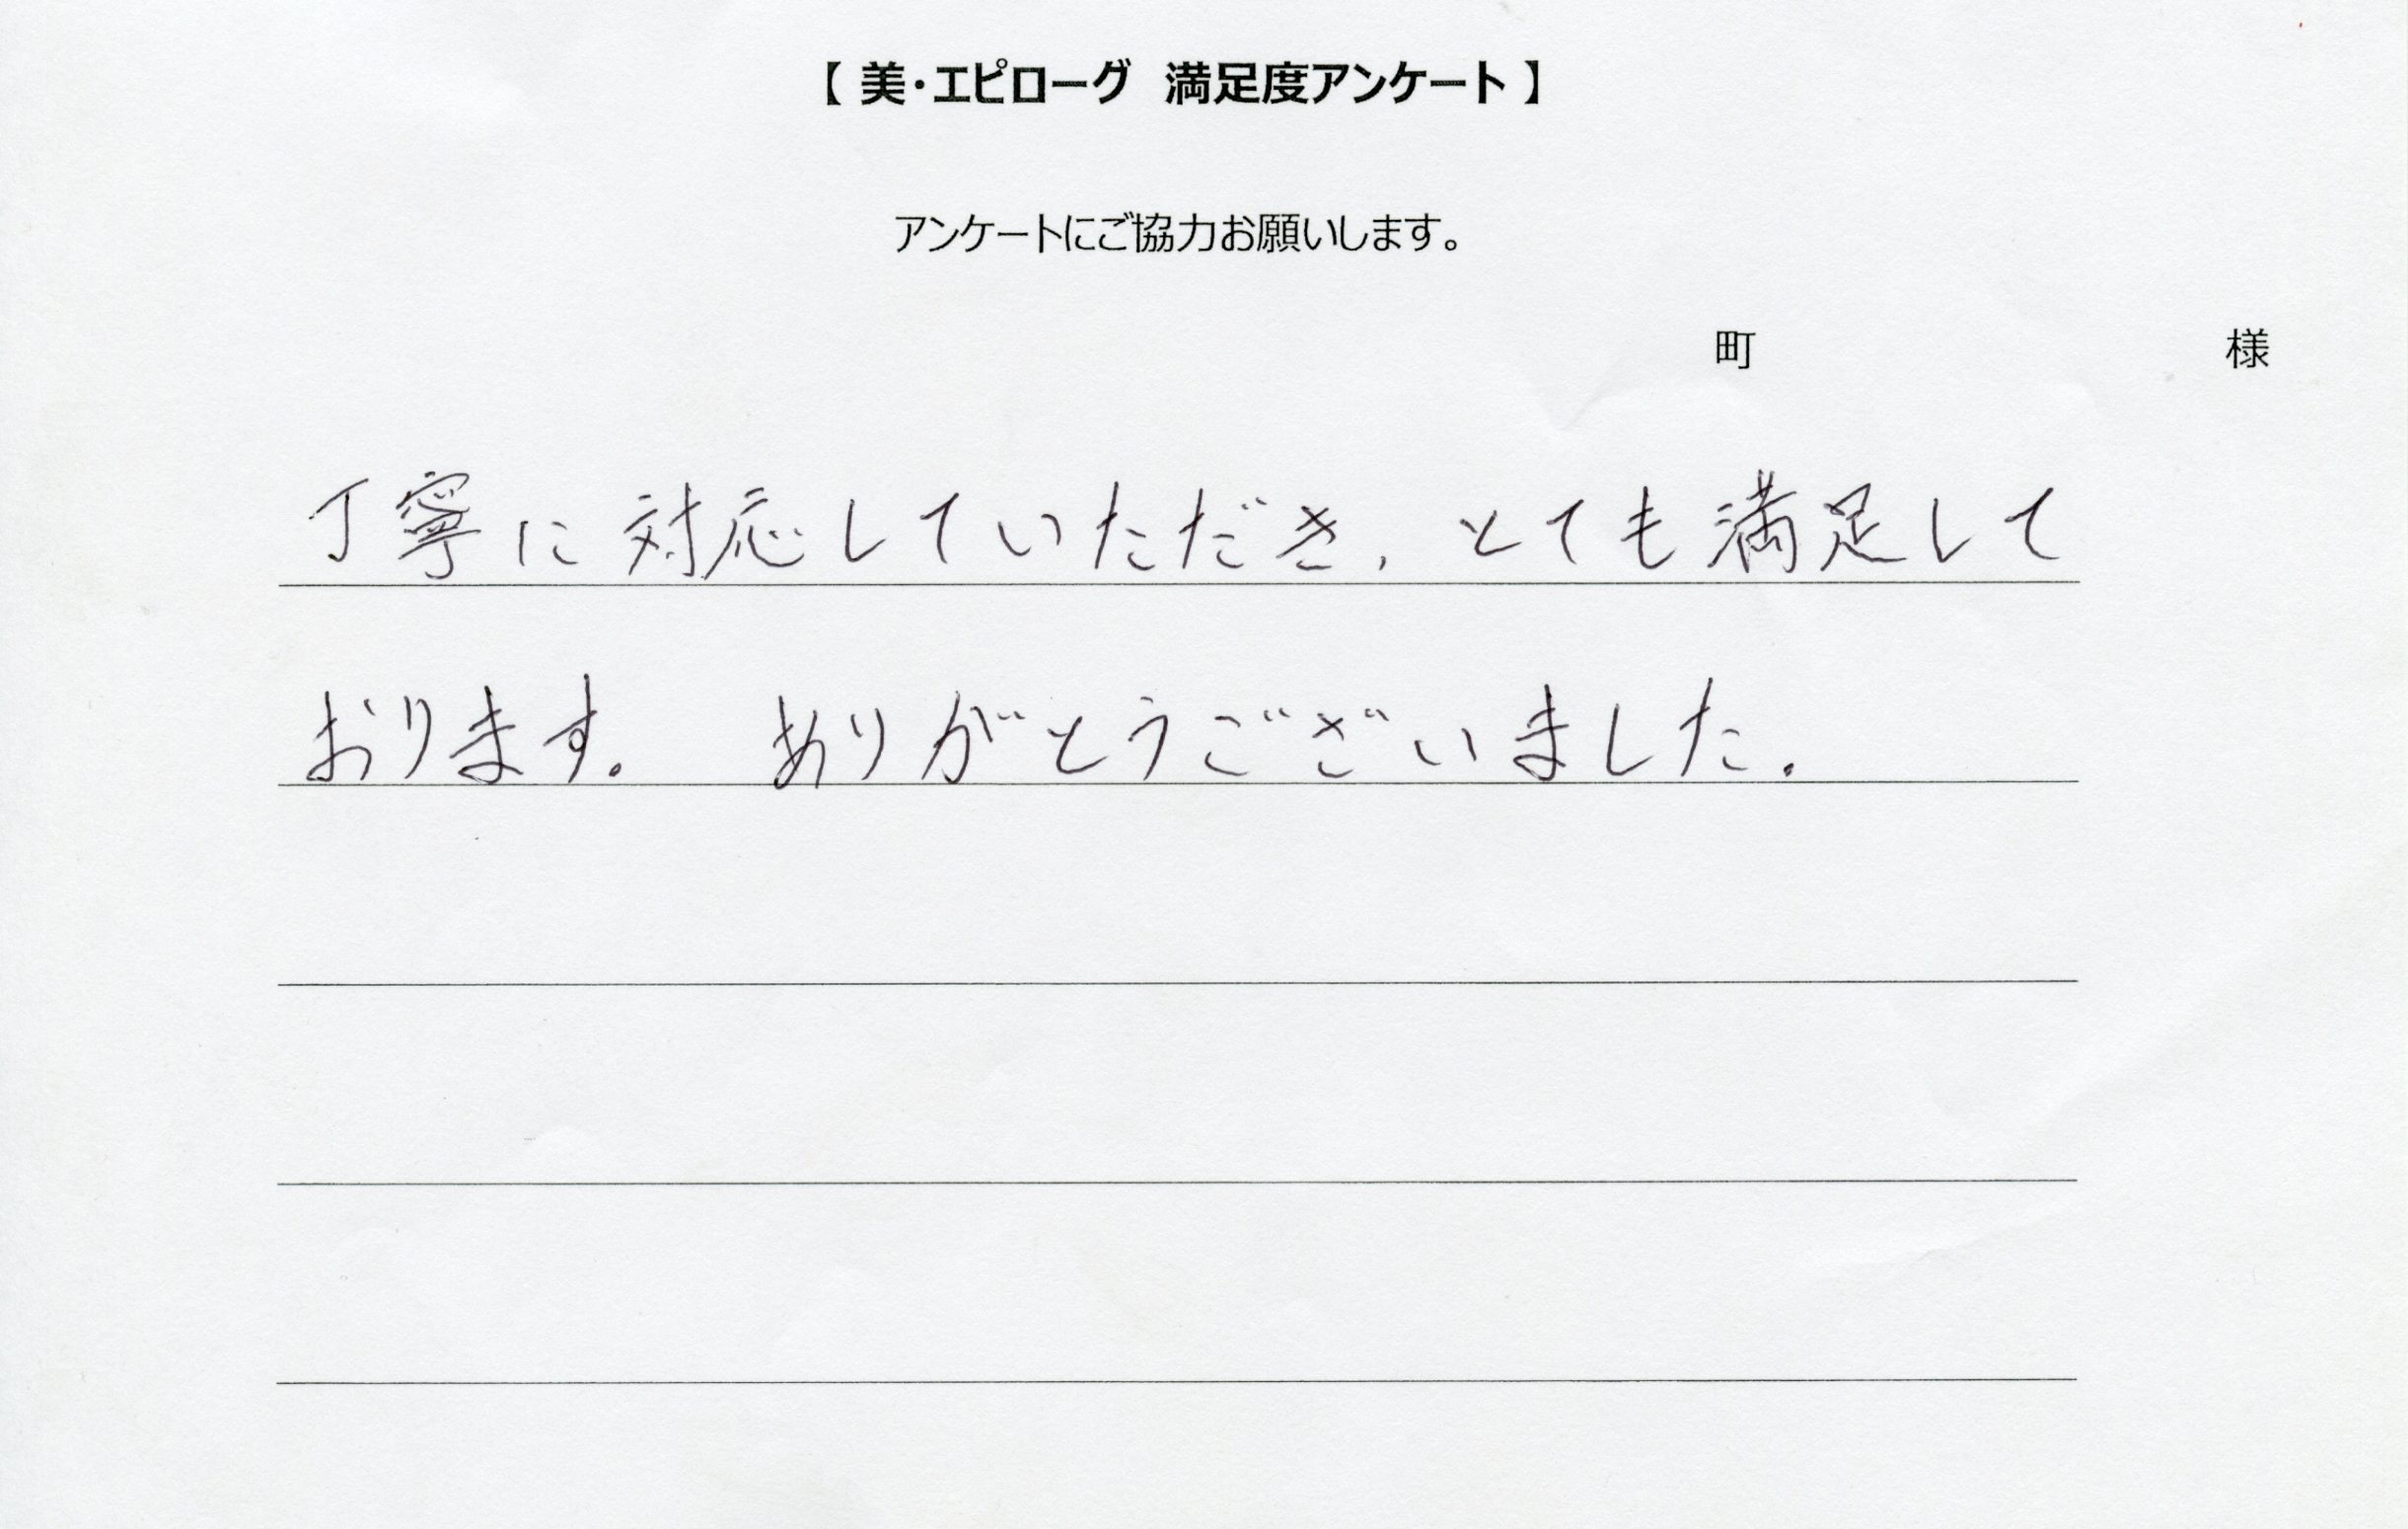 【 美・エピローグ 満足度アンケート 】
アンケートにご協力お願いします。
町 様
丁寧に対応していただき、とても満足して
おります。 ありがとうございました。